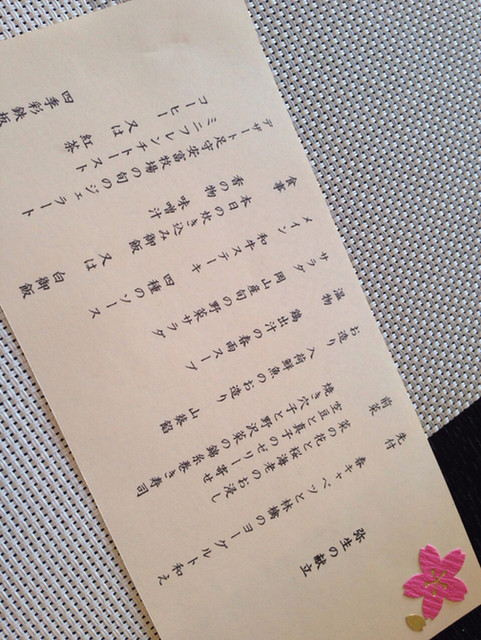 弥生の献立
先付 春キャベツと林檎のヨーグルト和え
前菜 菜の花と桜海老のお浸し
空豆と真子のゼリー寄せ
焼き穴子と野沢菜の錦糸巻き寿司
お造り 入荷鮮魚のお造り 山葵餡
温物 鶏出汁の春雨スープ
サラダ 岡山産旬の野菜サラダ
メイン 和牛ステーキ 四種のソース
食事 本日の炊き込み御飯 又は 白御飯
香の物 味噌汁
デザート 足守安富牧場の旬のジェラート
ミニフレンチトースト
コーヒー 又は 紅茶
四季彩鉄板